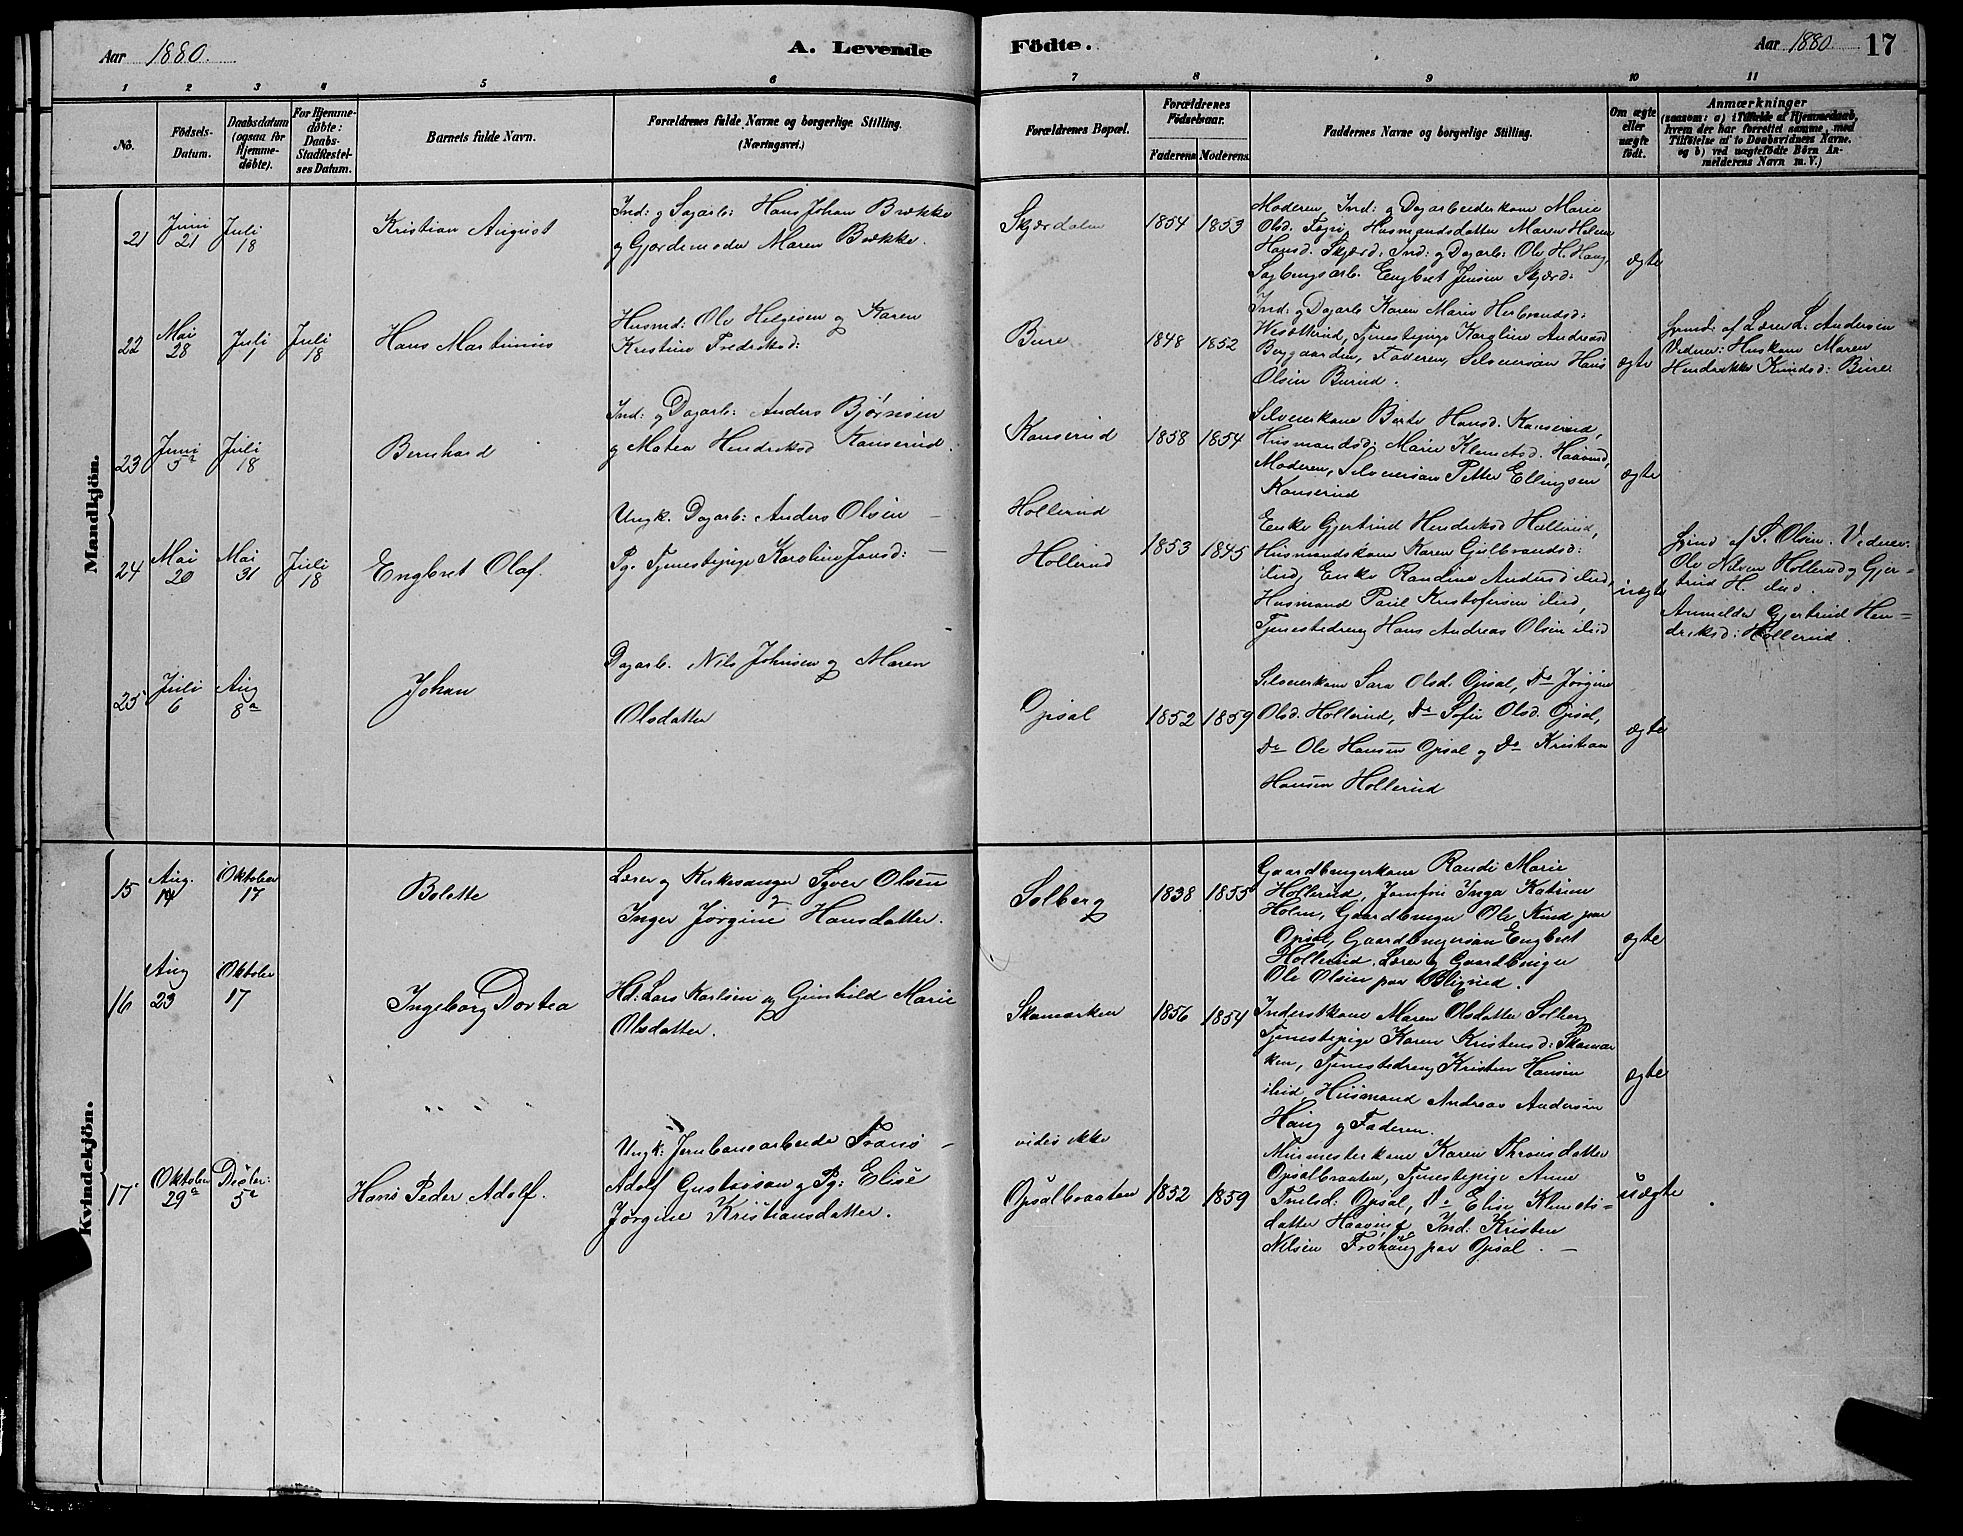 Aar 1880.
A. Levende
Födte.
Aar 1880
17
1 2 3 4 5 6 7 8 9 10 11
No.
Födsels-
Datum.
Daabsdatum
(ogsaa for
Hjemme-
döbte).
For Hjemme-
döbte:
Daabs-
Stadfæstel-
ses Datum.
Barnets fulde Navn.
Forældrenes fulde Navne og borgerlige Stilling.
(Næringsvei.)
Forældrenes Bopæl.
Forældrenes
Födselsaar.
Faderens Moderens
Faddernes Navne og borgerlige Stilling.
Om ægte
eller
uægte
födt.
Anmærkninger
(saasom: a) i Tilfælde af Hjemmedaab,
hvem der har forrettet samme, med
Tilföielse af to Daabsvidners Navne.
og b) ved uægtefödte Börn An-
melderens Navn m. V.)
Mandkjön.
21
Juni
21
Juli
18
Kristian August
Ind: g Sagarb: Hans Johan Brække
g Gjordemoder Maren Brække.
Skjærdalen
1854 1853
Moderen, Ind: g Dagarbeiderkone Marie
Olsd. Husmandsdatter Maren Helene
Hansd. Skjærd. Ind: g Dagarb: Ole H. Haug,
Sagbrugsarb. Engbret Jensen Skjærd:
ægte
22
Mai
28
Juli
1
Juli
18
Hans Martinius
Husmd: Ole Helgesen g Karen
Kristine Fredriksd:
Bure
1848 1852
Ind: g Dagarb Karen Marie Herbrandsd:
Tjenestepige Karoline Andreasd
Berggaarden, Faderen, Selveiersøn Hans
Olsen Burud.
ægte
Hjmd: af Lærer L. Andersen
Vidner: Huskone Maren
Hendrikke Knudsd: Bure
23
Juni
5te
Juli
18
Bernhard
Ind: g Dagarb: Anders Bjørnsen
g Matea Hendriksd Kanserud.
Kanserud
1858 1854
Selveierkone Berte Hansd. Kanserud,
Husmandsd: Maren Klemetsd. Haavind,
Moderen, Selveiersøn Petter Ellingsen
Kanserud
ægte
24
Mai
20
Mai
31
Juli
18
Engbret Olaf.
Ungk. Dagarb: Anders Olsen —
Pg. Tjenestepige Karoline Jansd: —
Hollerud
Hollerud
1853 1845
Enke Gjertrud Hendriksd Hollerud,
Husmandskone Karen Gulbrandsd:
ibid, Enke Randine Andersd ibid,
Husmand Paul Kristofersen ibid,
Tjenestedreng Hans Andreas Olsen ibid
uægte
Hjmd af S. Olsen. Vidner:
Ole Nilsen Hollerud g Gjer-
trud H. ibid.
Anmelder Gjertrud Hen-
driksd: Hollerud.
25
Juli
6
Aug
8a
Johan
Dagarb. Nils Johnsen g Maren
Olsdatter
Opsal
1852 1859
Selveierkone Sara Olsd. Opsal, Do Jørgine
Olsd. Hollerud, Do Sofie Olsd. Opsal,
Do Ole Hansen Opsal g Do Kristian
Hansen Hollerud
ægte
Kvindekjön.
15
Aug.
14
Oktober
17
Bolette
Lærer g Kirkesanger Syver Olsen
g
Inger Jørgine Hansdatter.
Solberg
1838 1855
Gaardbrugerkone Randi Marie
Hollerud, Jomfru Inga Katrine
Holm, Gaardbruger Ole Knud paa
Opsal, Gaardbrugersøn Engbret
Hollerud. Lærer g Gaardbruger
Ole Olsen paa Bligud.
ægte
16
Aug
23
Oktober
17
Ingeborg Dortea
Hd: Lars Karlsen og Gunhild Marie
Olsdatter.
Skamarken
1856 1854
Inderstkone Maren Olsdatter Solberg
Tjenestepige Karen Kristensd: Skamar
ken, Tjenestedreng Kristen Hansen
ibid, Husmand Andreas Andersen
Haug g Faderen.
ægte
17
Oktober
29a
Desbr:
5te
Hans Peder Adolf.
Ungk: Jernbanearbeider Frans —
Adolf Gustavson g Pg: Elise
Jørgine Kristiansdatter.
vides ikke
Opsalbraaten
1852 1859
Murmesterkone Karen Thronsdatter
Opsalbraaten, Tjenestepige Anne
Trulsd. Opsal, Do Elise Klemets-
datter Haavind, Ind: Kristen
Nilsen Frøhaug paa Opsal. —
uægte